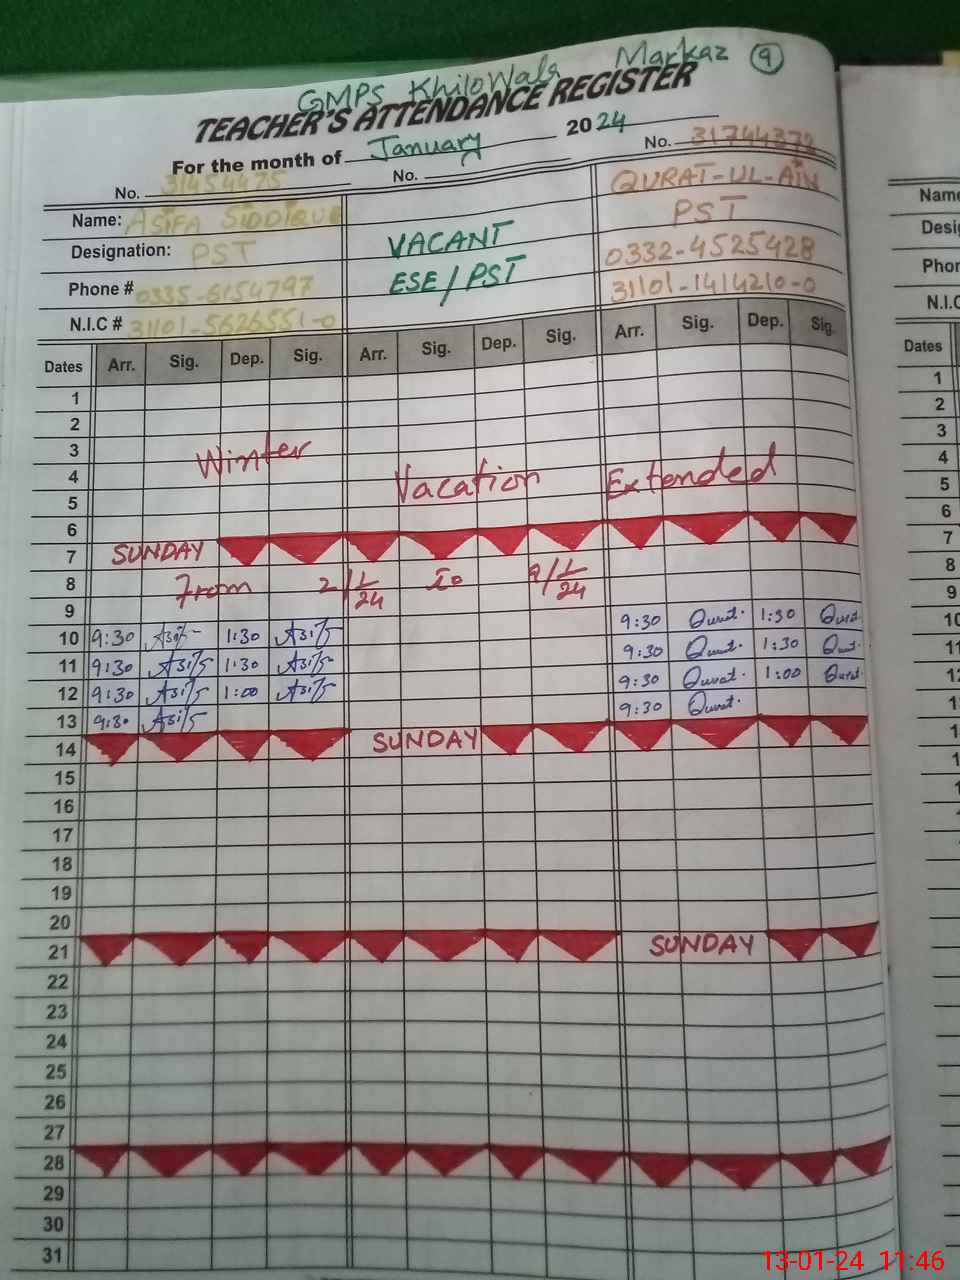 GMPS KhiloWala Markaz 9
TEACHER'S ATTENDANCE REGISTER
For the month of January 2024
No. 31454475 No. No. 31744372
Name: ASiFA SiDDiQUE QURAT-UL-AiN
Designation: PST VACANT PST
Phone # 0335-6154797 ESE/PST 0332-4525428
N.I.C # 31101-5626551-0 31101-1414210-0
Dates Arr. Sig. Dep. Sig. Arr. Sig. Dep. Sig. Arr. Sig. Dep. Sig.
1
2
3 Winter
4 Vacation Extended
5
6
7 SUNDAY
8 From 2/1/24 To 9/1/24
9
10 9:30 Asif 1:30 Asif 9:30 Qurat. 1:30 Qurat.
11 9:30 Asif 1:30 Asif 9:30 Qurat. 1:30 Qurat.
12 9:30 Asif 1:00 Asif 9:30 Qurat. 1:00 Qurat.
13 9:30 Asif 9:30 Qurat.
14 SUNDAY
15
16
17
18
19
20
21 SUNDAY
22
23
24
25
26
27
28
29
30
31
Name
Desig
Phon
N.I.C
Dates
1
2
3
4
5
6
7
8
9
10
11
12
13-01-24 11:46